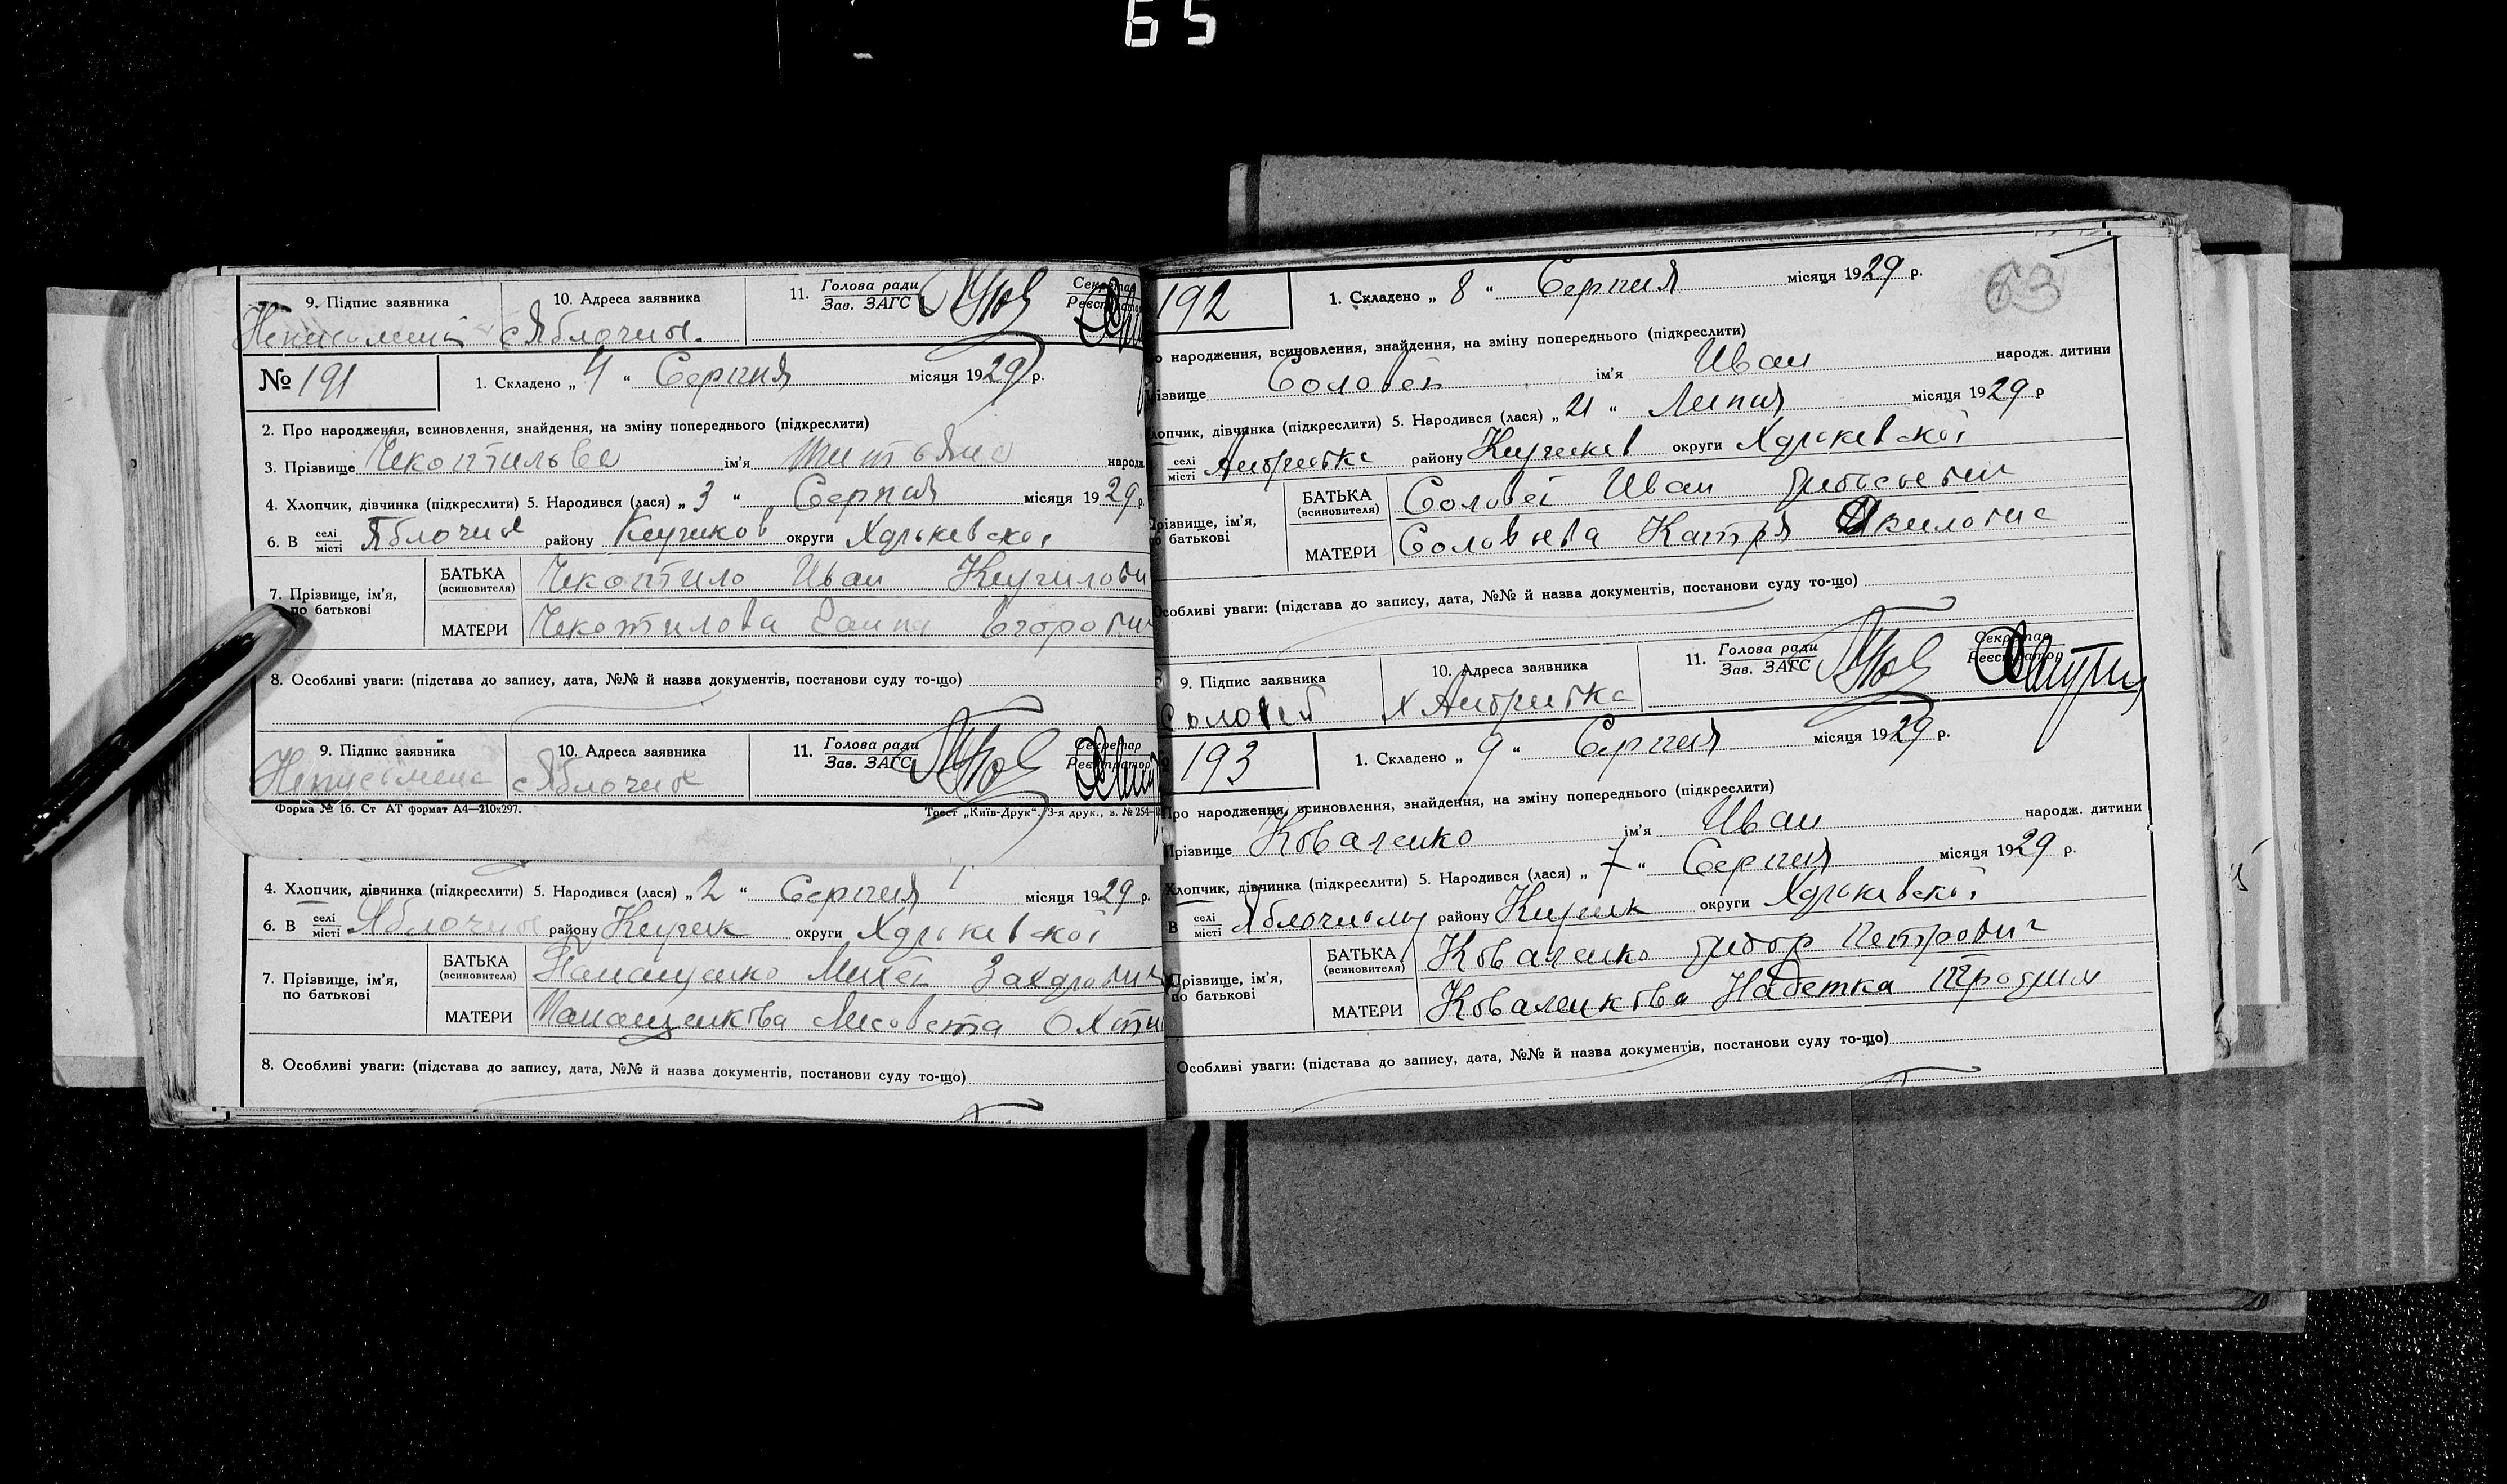 65
9. Підпис заявника 10. Адреса заявника 11. Голова ради Зав. ЗАГС Секретар Реєстратор
с Яблочне.
№ 191 1. Складено „ 4 “ Серпня місяця 1929 р.
2. Про народження, всиновлення, знайдення, на зміну попереднього (підкреслити)
3. Прізвище ім'я народ
4. Хлопчик, дівчинка (підкреслити) 5. Народився (лася) „ 3 “ Серпня місяця 1929 р.
6. В селі місті Яблочне району округи Харьківської
7. Прізвище, ім'я, по батькові
БАТЬКА (всиновителя) Чекотило Иван
МАТЕРИ Чекотилова
8. Особливі уваги: (підстава до запису, дата, №№ й назва документів, постанови суду то-що)
9. Підпис заявника 10. Адреса заявника 11. Голова ради Зав. ЗАГС Секретар Реєстратор
Неписьмена с Яблочне
Форма № 16. Ст АТ формат А4—210х297. Трест „Київ-Друк“. 3-я друк., з. № 254
4. Хлопчик, дівчинка (підкреслити) 5. Народився (лася) „ 2 “ Серпня місяця 1929 р.
6. В селі місті Яблочне району округи Харьківської
7. Прізвище, ім'я, по батькові
БАТЬКА (всиновителя) Панащенко Михей Захарович
МАТЕРИ Панащенкова Лисовета
8. Особливі уваги: (підстава до запису, дата, №№ й назва документів, постанови суду то-що)
63
192 1. Складено „ 8 “ Серпня місяця 1929 р.
о народження, всиновлення, знайдення, на зміну попереднього (підкреслити)
різвище Соловей ім'я Иван народж. дитини
лопчик, дівчинка (підкреслити) 5. Народився (лася) „ 21 “ Липня місяця 1929 р
селі місті району округи Харьківської
Прізвище, ім'я, по батькові
БАТЬКА (всиновителя) Соловей Иван
МАТЕРИ Соловьева Катря
Особливі уваги: (підстава до запису, дата, №№ й назва документів, постанови суду то-що)
9. Підпис заявника 10. Адреса заявника 11. Голова ради Зав. ЗАГС Секретар Реєстратор
Соловей х
193 1. Складено „ 9 “ Серпня місяця 1929 р.
Про народження, всиновлення, знайдення, на зміну попереднього (підкреслити)
Прізвище Коваленко ім'я Иван народж. дитини
Хлопчик, дівчинка (підкреслити) 5. Народився (лася) „ 7 “ Серпня місяця 1929 р.
В селі місті Яблочному району округи Харьківської
Прізвище, ім'я, по батькові
БАТЬКА (всиновителя) Коваленко Федор Петрович
МАТЕРИ Коваленкова
Особливі уваги: (підстава до запису, дата, №№ й назва документів, постанови суду то-що)